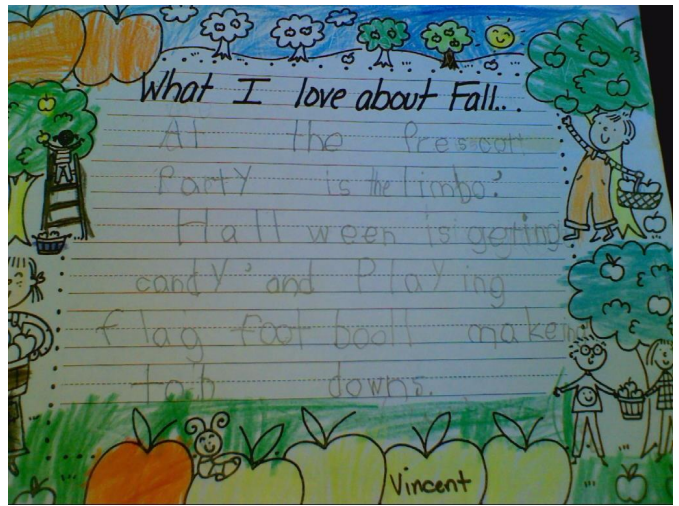 What I love about Fall..
At the Prescott
Party is the limbo.'
Hall ween is geting
candy' and Playing
flag foot booll makeing
tob downs.
Vincent